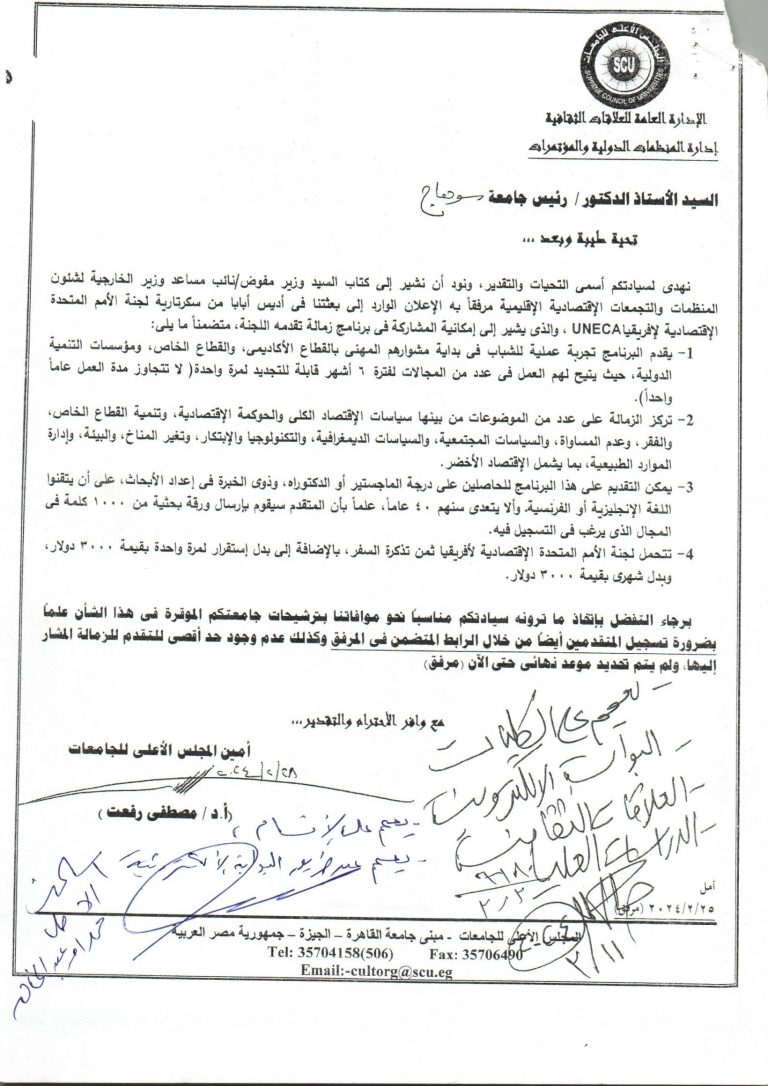 المجلس الأعلى للجامعات
SCU
SUPREME COUNCIL OF UNIVERSITIES
الإدارة العامة للعلاقات الثقافية
إدارة المنظمات الدولية والمؤتمرات
السيد الأستاذ الدكتور/ رئيس جامعة سوهاج
تحية طيبة وبعد ،،،
نهدى لسيادتكم أسمى التحيات والتقدير، ونود أن نشير إلى كتاب السيد وزير مفوض/نائب مساعد وزير الخارجية لشئون
المنظمات والتجمعات الإقتصادية الإقليمية مرفقاً به الإعلان الوارد إلى بعثتنا فى أديس أبابا من سكرتارية لجنة الأمم المتحدة
الإقتصادية لإفريقيا UNECA ، والذى يشير إلى إمكانية المشاركة فى برنامج زمالة تقدمه اللجنة، متضمناً ما يلى:
1- يقدم البرنامج تجربة عملية للشباب فى بداية مشوارهم المهنى بالقطاع الأكاديمى، والقطاع الخاص، ومؤسسات التنمية
الدولية، حيث يتيح لهم العمل فى عدد من المجالات لفترة ٦ أشهر قابلة للتجديد لمرة واحدة( لا تتجاوز مدة العمل عاماً
واحداً).
2- تركز الزمالة على عدد من الموضوعات من بينها سياسات الإقتصاد الكلى والحوكمة الإقتصادية، وتنمية القطاع الخاص،
والفقر، وعدم المساواة، والسياسات المجتمعية، والسياسات الديمغرافية، والتكنولوجيا والإبتكار، وتغير المناخ، والبيئة، وإدارة
الموارد الطبيعية، بما يشمل الإقتصاد الأخضر.
3- يمكن التقديم على هذا البرنامج للحاصلين على درجة الماجستير أو الدكتوراه، وذوى الخبرة فى إعداد الأبحاث، على أن يتقنوا
اللغة الإنجليزية أو الفرنسية، وألا يتعدى سنهم ٤٠ عاماً، علماً بأن المتقدم سيقوم بإرسال ورقة بحثية من ١٠٠٠ كلمة فى
المجال الذى يرغب فى التسجيل فيه.
4- تتحمل لجنة الأمم المتحدة الإقتصادية لأفريقيا ثمن تذكرة السفر، بالإضافة إلى بدل إستقرار لمرة واحدة بقيمة ٣٠٠٠ دولار،
وبدل شهرى بقيمة ٣٠٠٠ دولار.
برجاء التفضل بإتخاذ ما ترونه سيادتكم مناسباً نحو موافاتنا بترشيحات جامعتكم الموقرة فى هذا الشأن علماً
بضرورة تسجيل المتقدمين أيضاً من خلال الرابط المتضمن فى المرفق وكذلك عدم وجود حد أقصى للتقدم للزمالة المشار
إليها، ولم يتم تحديد موعد نهائى حتى الآن (مرفق)
مع وافر الأحترام والتقدير،،،
أمين المجلس الأعلى للجامعات
٢٠٢٤/٢/٢٨
(أ.د/ مصطفى رفعت)
- تعمم على الكليات
- البوابة الالكترونية
- العلاقات الثقافية
- الدراسات العليا
- يعمم على الأقسام
- يعمم عن طريق البوابة الالكترونية
أمل
٢٠٢٤/٢/٢٥ (مرفق)
المجلس الأعلى للجامعات - مبنى جامعة القاهرة - الجيزة - جمهورية مصر العربية
Tel: 35704158(506) Fax: 35706490
Email:-cultorg@scu.eg